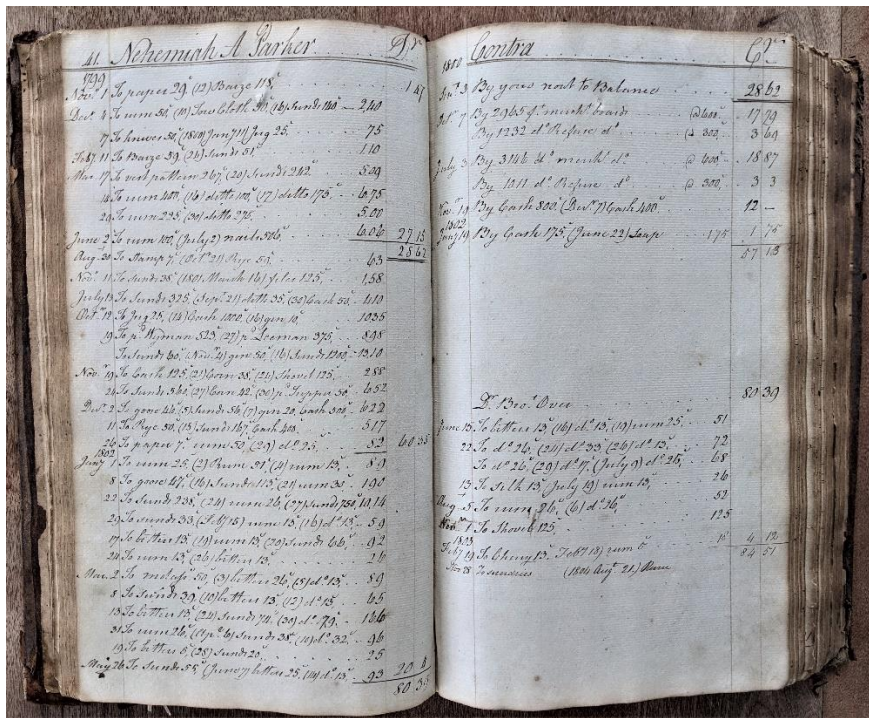 41 Nehemiah A Parker Dr
1799
Novr 1 To paper 29, (12) Baize 118, 1 47
Decr 4 To rum 50, (10) Tow Cloth 50, (16) Sunds 140 2,40
7 To knives 50, (1800 Jany 11) Jug 25, 75
Feby 11 To Baize 59, (24) Sunds 51, 1,10
Mar 17 To vest pattern 267, (20) Sunds 242 5,09
To rum 400, (16) ditto 100, (17) ditto 175, 6,75
29 To rum 225, (30) ditto 275, 5,00
June 2 To rum 100, (July 2) nails 506, 6,06 27 15
28 62
Aug. 30 To Stamp 7, (Octr 21) Rye 50, 63
Novr 11 To Sunds 38, (1801 March 16) 125, 1,58
July 13 To Sunds 325, (Sepr 21) cloth 35, (30) Cash 50, 4,10
Octr 12 To Jug 25, (14) Cash 1000, (16) gin 10, 10 35
19 To pd Wyman 523, (27) pd 375, 8 98
To Sunds 60, (Novr 4) gin 50, (16) Sunds 1200, 13,10
Novr 19 To Cash 125, (21) Corn 38, (24) Shovel 125, 2 88
24 To Sunds 560, (27) Corn 42, (30) pd Tupper 50, 6 52
Decr 2 To gove 46, (5) Sunds 56, (7) gin 20, Cash 500, 6 22
11 To Rye 50, (13) Sunds 167, Cash 400, 5 17
26 To paper 7, rum 50, (29) do 25, 82 60 35
1802
Jany 1 To rum 25, (2) Rum 51, (4) rum 13, 89
8 To gove 47, (16) Sunds 113, (21) rum 30, 1 90
22 To Sunds 238, (24) rum 26, (27) Sunds 750, 10,14
29 To Sunds 33, (Feby 15) rum 13, (16) do 13, 59
17 To bitters 13, (19) rum 13, (20) Sunds 66, 92
24 To rum 13, (26) bitters 13, 26
Mar. 2 To molass 50, (3) bitters 26, (5) do 13, 89
8 To Sunds 39, (10) bitters 13, (12) do 13, 65
13 To bitters 13, (24) Sunds 74, (30) do 79, 1 66
31 To rum 26, (Apr 6) Sunds 38, (10) do 32, 96
19 To bitters 5, (28) Sunds 20, 25
May 26 To Sunds 55, (June 7) bitters 25, (14) do 13, 93 20 4
80 39
1800 Contra Cr
By your nout to Balance 28 62
7 By 2965 ft mercht boards @ 600 17 79
By 1232 do Refuse do @ 300, 3 69
July 3 By 3146 do mercht do @ 600 18 87
By 1011 do Refuse do @ 300, 3 3
Novr 19 By Cash 800, (Decr 7) Cash 400, 12 —
1802
Jany 19 By Cash 175, (June 22) Soap 175 1 75
57 13
Dr Brot Over 80 39
June 15 To bitters 13, (16) do 13, (19) rum 25, 51
22 To do 26, (24) do 33, (26) do 13, 72
To do 26, (29) do 17, (July 9) do 25, 68
13 To silk 13, (July 19) rum 13, 26
Aug. 5 To rum 26, (6) do 26, 52
Novr 1 To Shovel 125, 125
1803
Feby 19 To Cherry 13, (Feby 18) rum 5 4 12
84 51
Novr 28 To sundries (1804 Augt 21) Rum